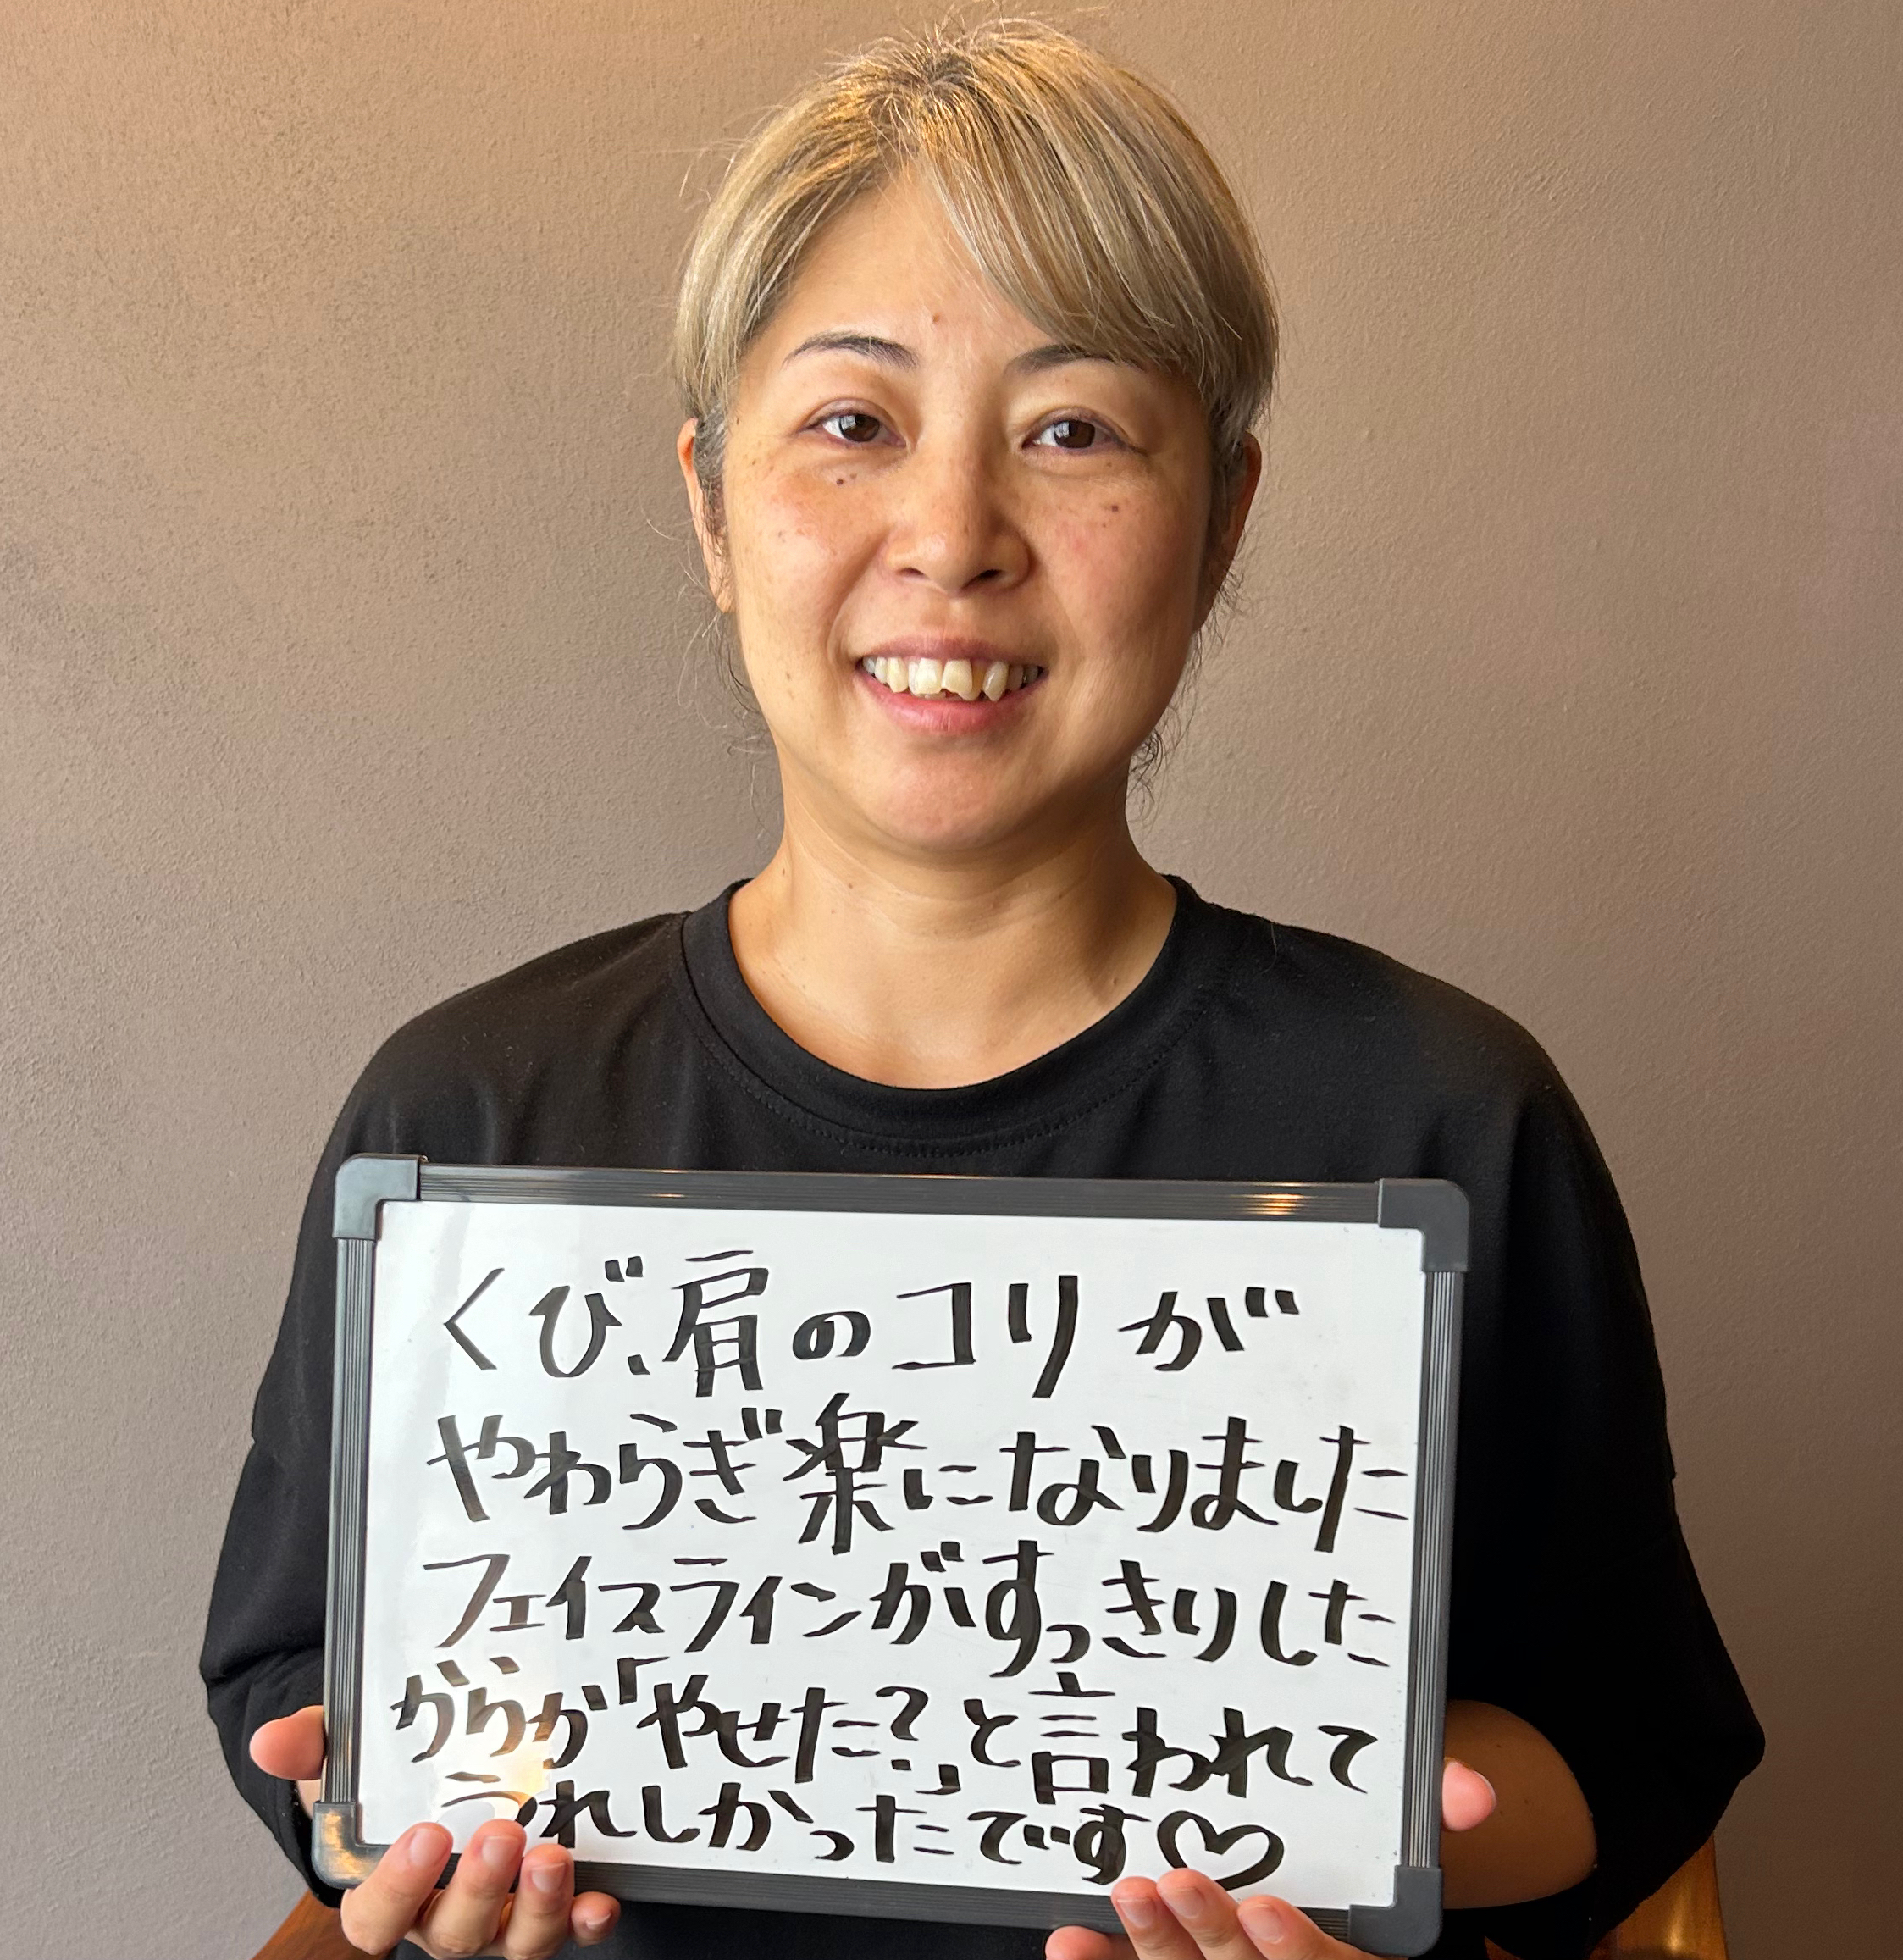 くび、肩のコリが
やわらぎ楽になりました
フェイスラインがすっきりした
からか「やせた?」と言われて
うれしかったです♡